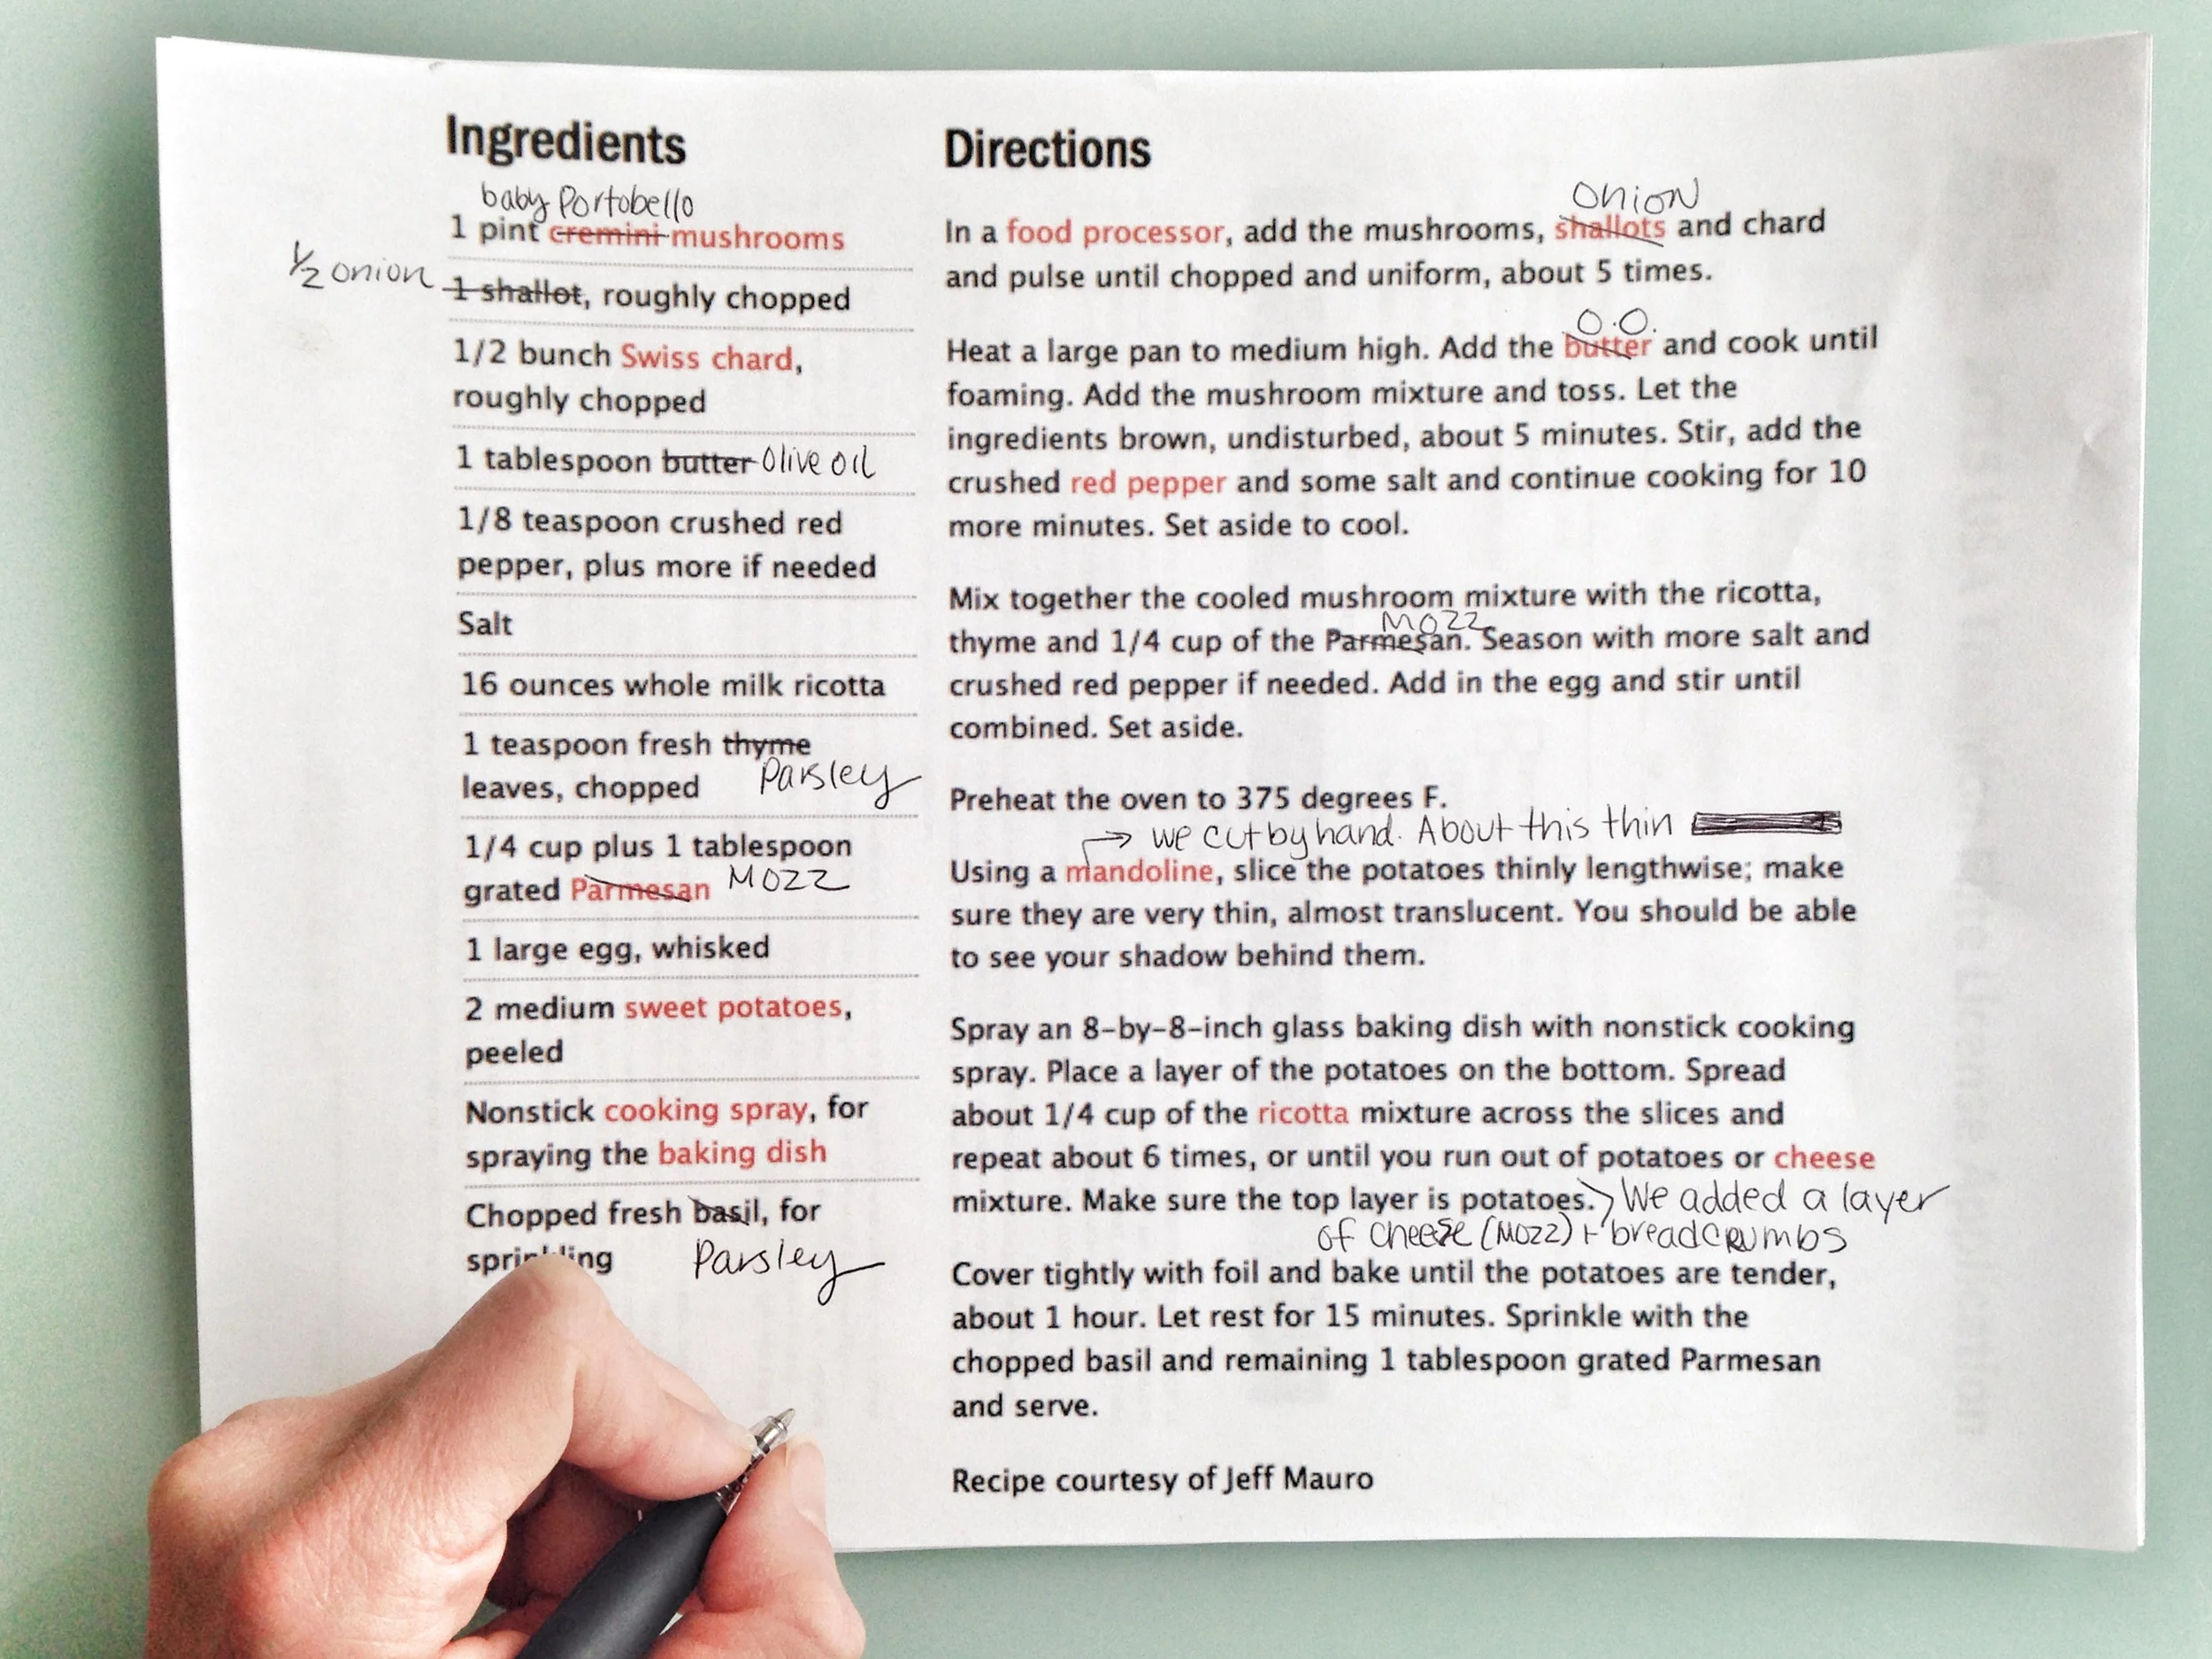 Ingredients
baby Portobello
1 pint cremini mushrooms
1/2 onion
1 shallot, roughly chopped
1/2 bunch Swiss chard,
roughly chopped
1 tablespoon butter Olive oil
1/8 teaspoon crushed red
pepper, plus more if needed
Salt
16 ounces whole milk ricotta
1 teaspoon fresh thyme
leaves, chopped Parsley
1/4 cup plus 1 tablespoon
grated Parmesan Mozz
1 large egg, whisked
2 medium sweet potatoes,
peeled
Nonstick cooking spray, for
spraying the baking dish
Chopped fresh basil, for
sprinkling Parsley
Directions
Onion
In a food processor, add the mushrooms, shallots and chard
and pulse until chopped and uniform, about 5 times.
O.O.
Heat a large pan to medium high. Add the butter and cook until
foaming. Add the mushroom mixture and toss. Let the
ingredients brown, undisturbed, about 5 minutes. Stir, add the
crushed red pepper and some salt and continue cooking for 10
more minutes. Set aside to cool.
Mix together the cooled mushroom mixture with the ricotta,
Mozz
thyme and 1/4 cup of the Parmesan. Season with more salt and
crushed red pepper if needed. Add in the egg and stir until
combined. Set aside.
Preheat the oven to 375 degrees F.
→ we cut by hand. About this thin
Using a mandoline, slice the potatoes thinly lengthwise; make
sure they are very thin, almost translucent. You should be able
to see your shadow behind them.
Spray an 8-by-8-inch glass baking dish with nonstick cooking
spray. Place a layer of the potatoes on the bottom. Spread
about 1/4 cup of the ricotta mixture across the slices and
repeat about 6 times, or until you run out of potatoes or cheese
mixture. Make sure the top layer is potatoes. We added a layer
of cheese (Mozz) + breadcrumbs
Cover tightly with foil and bake until the potatoes are tender,
about 1 hour. Let rest for 15 minutes. Sprinkle with the
chopped basil and remaining 1 tablespoon grated Parmesan
and serve.
Recipe courtesy of Jeff Mauro